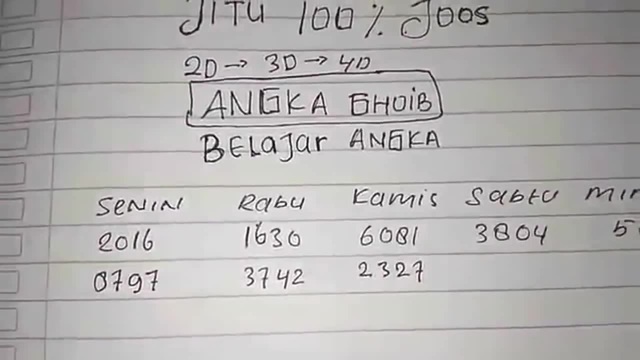 JITU 100% JOOS
2D → 3D → 4D
ANGKA GHOIB
BELAJAR ANGKA
SENIN RABU KAMIS SABTU MIN
2016 1630 6081 3804 5
8797 3742 2327